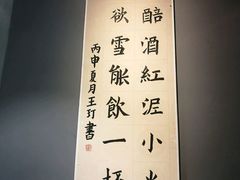 醅酒紅泥小
欲雪能飲一
丙申夏月王玎書